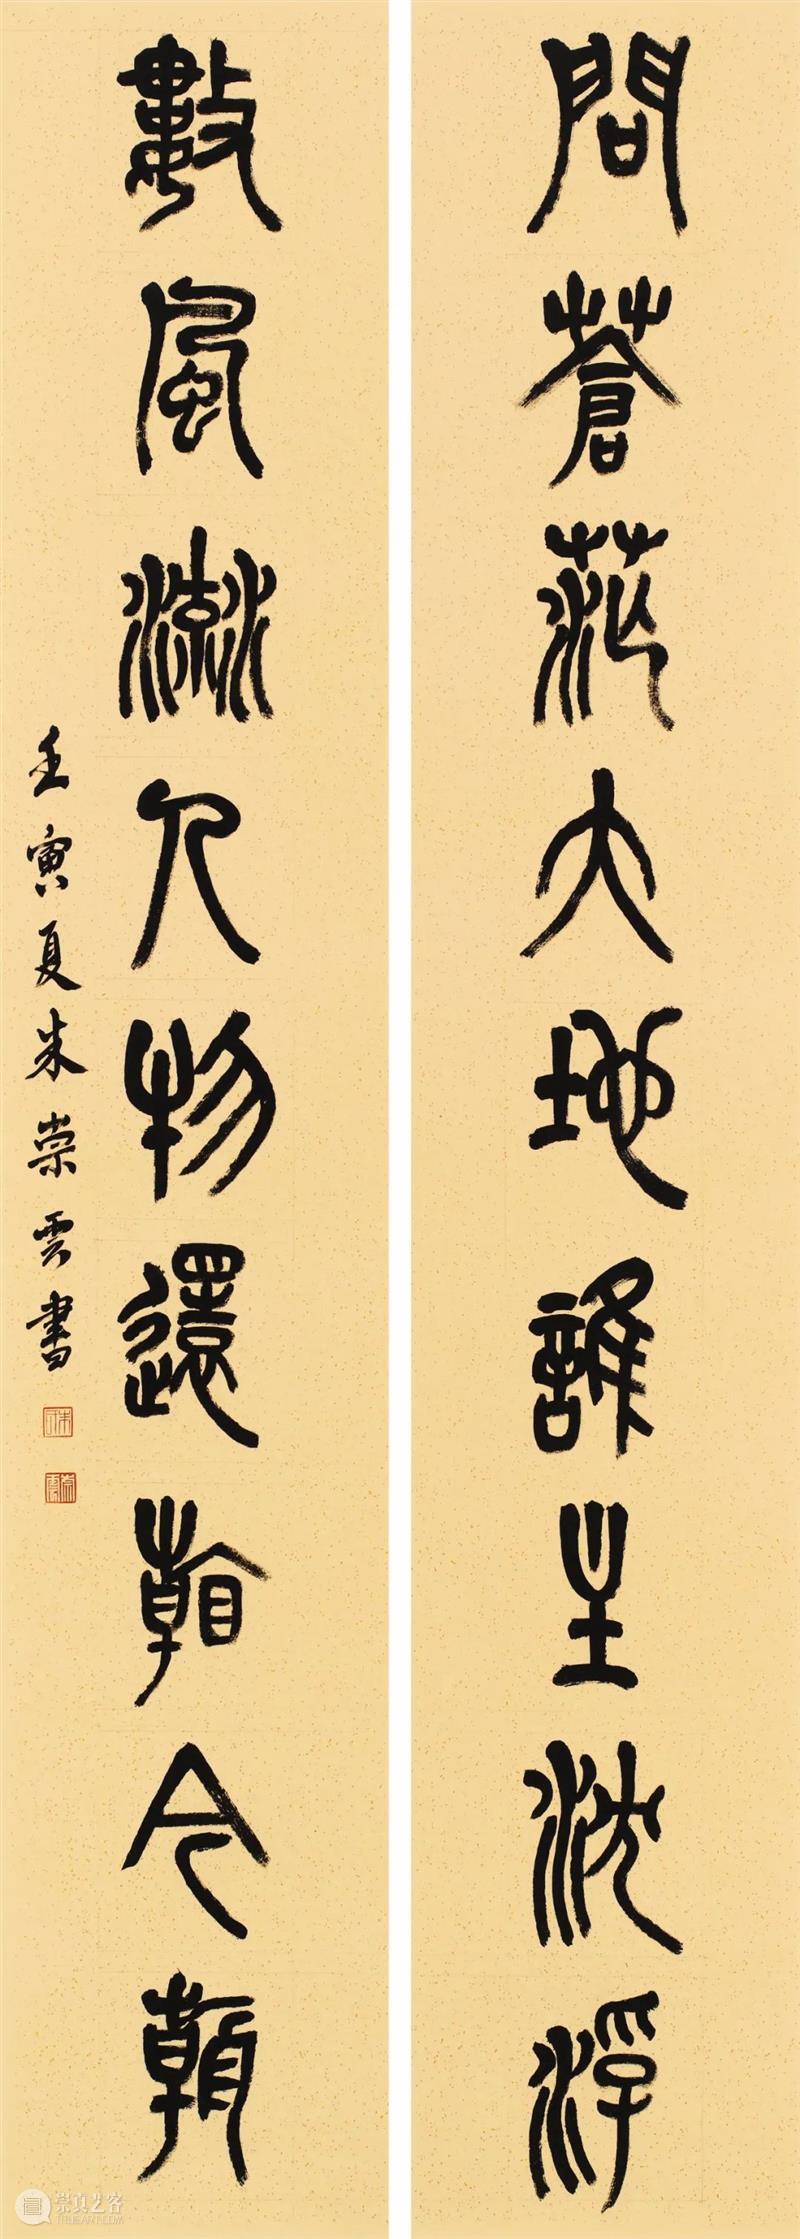 問蒼茫大地誰主沈浮
數風流人物還看今朝
壬寅夏朱崇雲書
崇雲
崇真艺客
TRUEART.COM